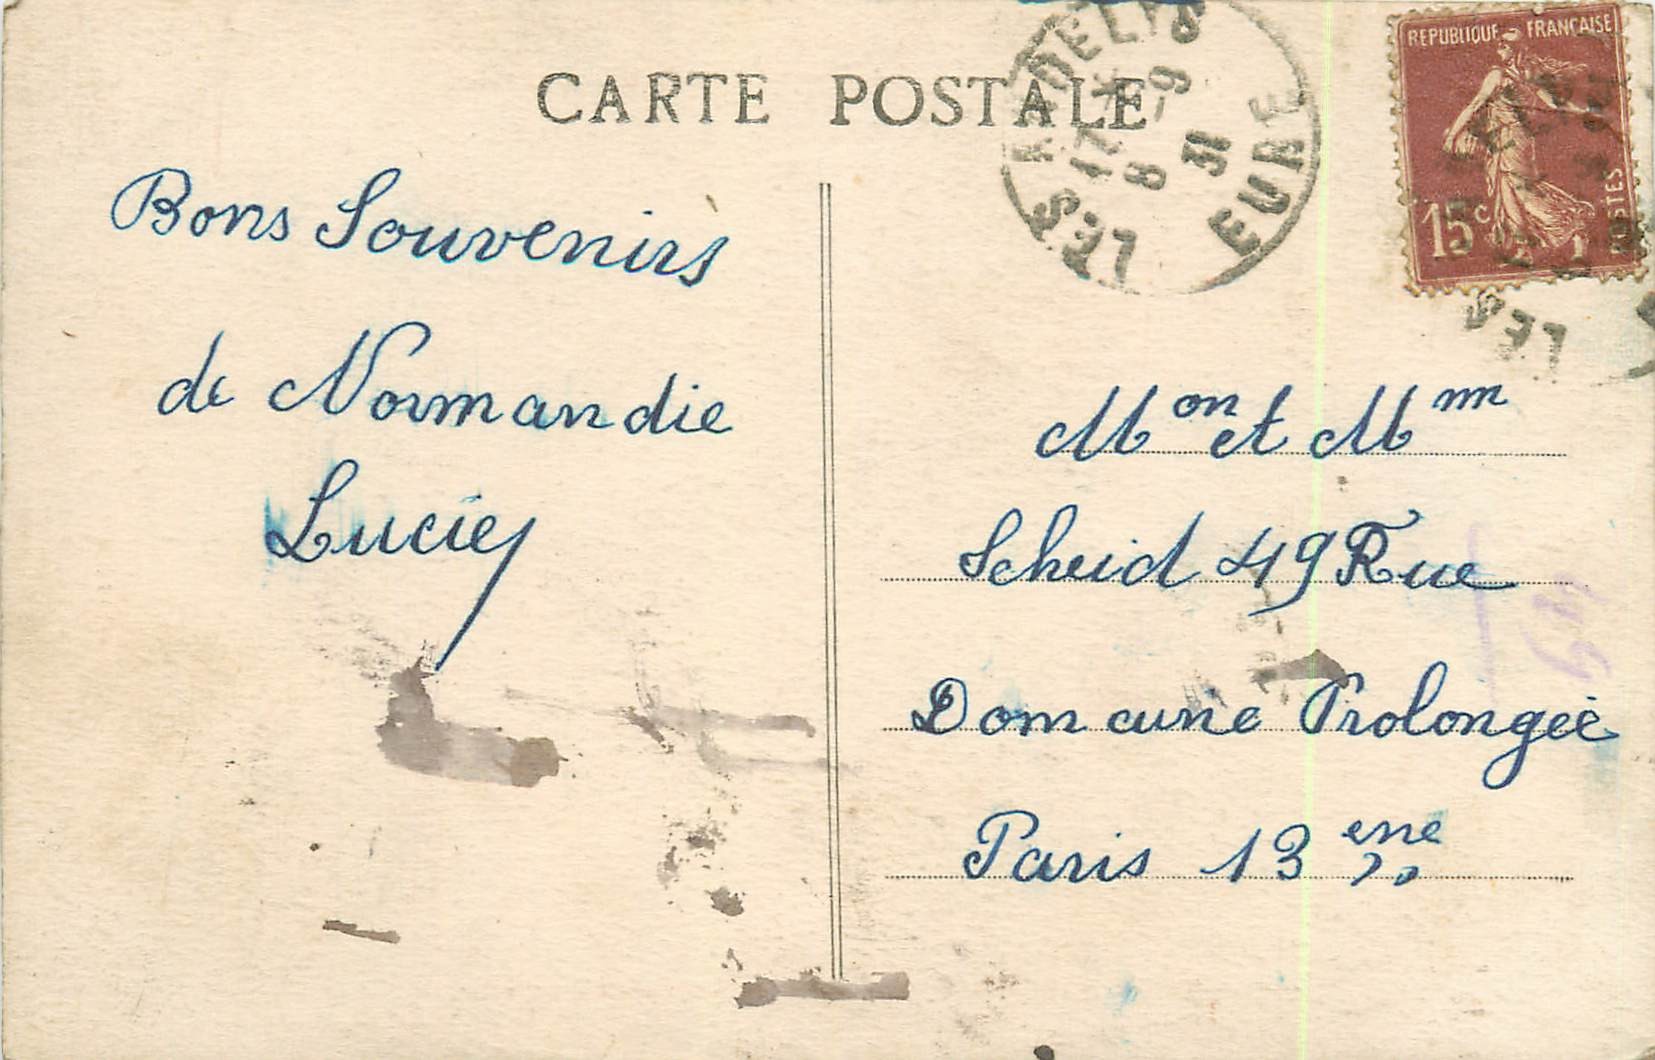 CARTE POSTALE
LES ANDELYS
17 * -9
8 31
EURE
REPUBLIQUE FRANÇAISE
15c
POSTES
LES
Bons Souvenirs
de Normandie
Lucie
Mon et Mme
Scheid 49 Rue
Domaine Prolongée
Paris 13 eme